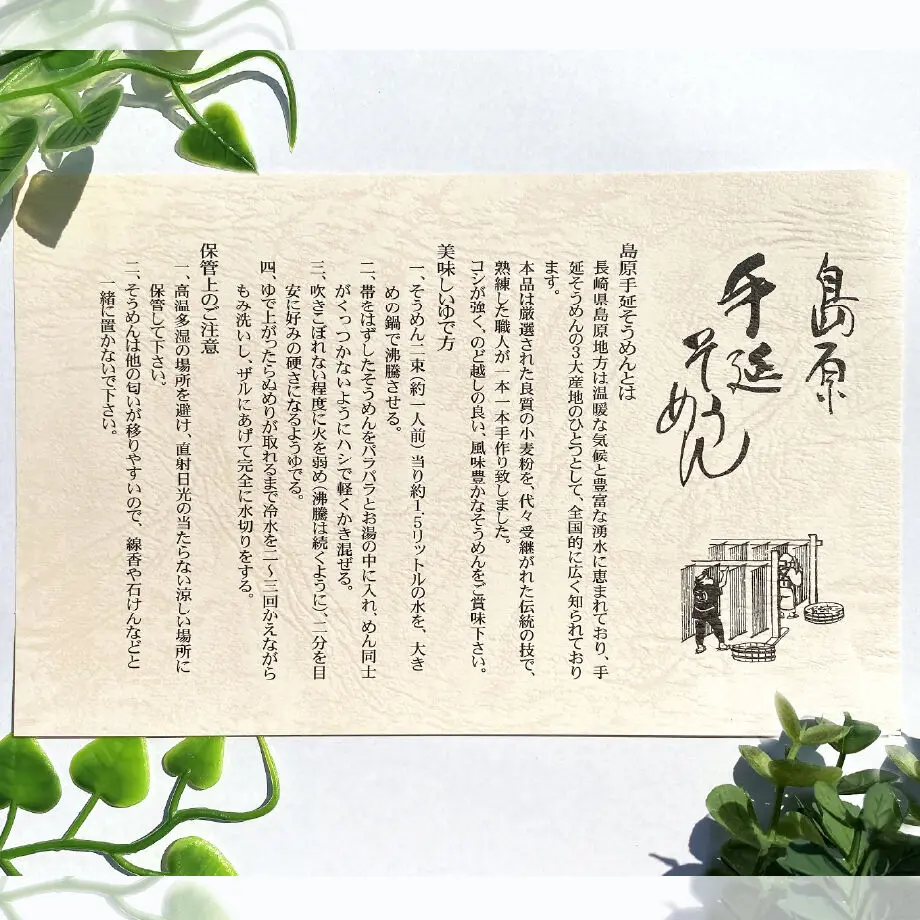 島原
手延
そうめん
島原手延そうめんとは
長崎県島原地方は温暖な気候と豊富な湧水に恵まれており、手
延そうめんの3大産地のひとつとして、全国的に広く知られており
ます。
本品は厳選された良質の小麦粉を、代々受継がれた伝統の技で、
熟練した職人が一本一本手作り致しました。
コシが強く、のど越しの良い、風味豊かなそうめんをご賞味下さい。
美味しいゆで方
一、そうめん二束（約一人前）当り約1.5リットルの水を、大き
めの鍋で沸騰させる。
二、帯をはずしたそうめんをパラパラとお湯の中に入れ、めん同士
がくっつかないようにハシで軽くかき混ぜる。
三、吹きこぼれない程度に火を弱め（沸騰は続くように）、二分を目
安に好みの硬さになるようゆでる。
四、ゆで上がったらぬめりが取れるまで冷水を二～三回かえながら
もみ洗いし、ザルにあげて完全に水切りをする。
保管上のご注意
一、高温多湿の場所を避け、直射日光の当たらない涼しい場所に
保管して下さい。
二、そうめんは他の匂いが移りやすいので、線香や石けんなどと
一緒に置かないで下さい。